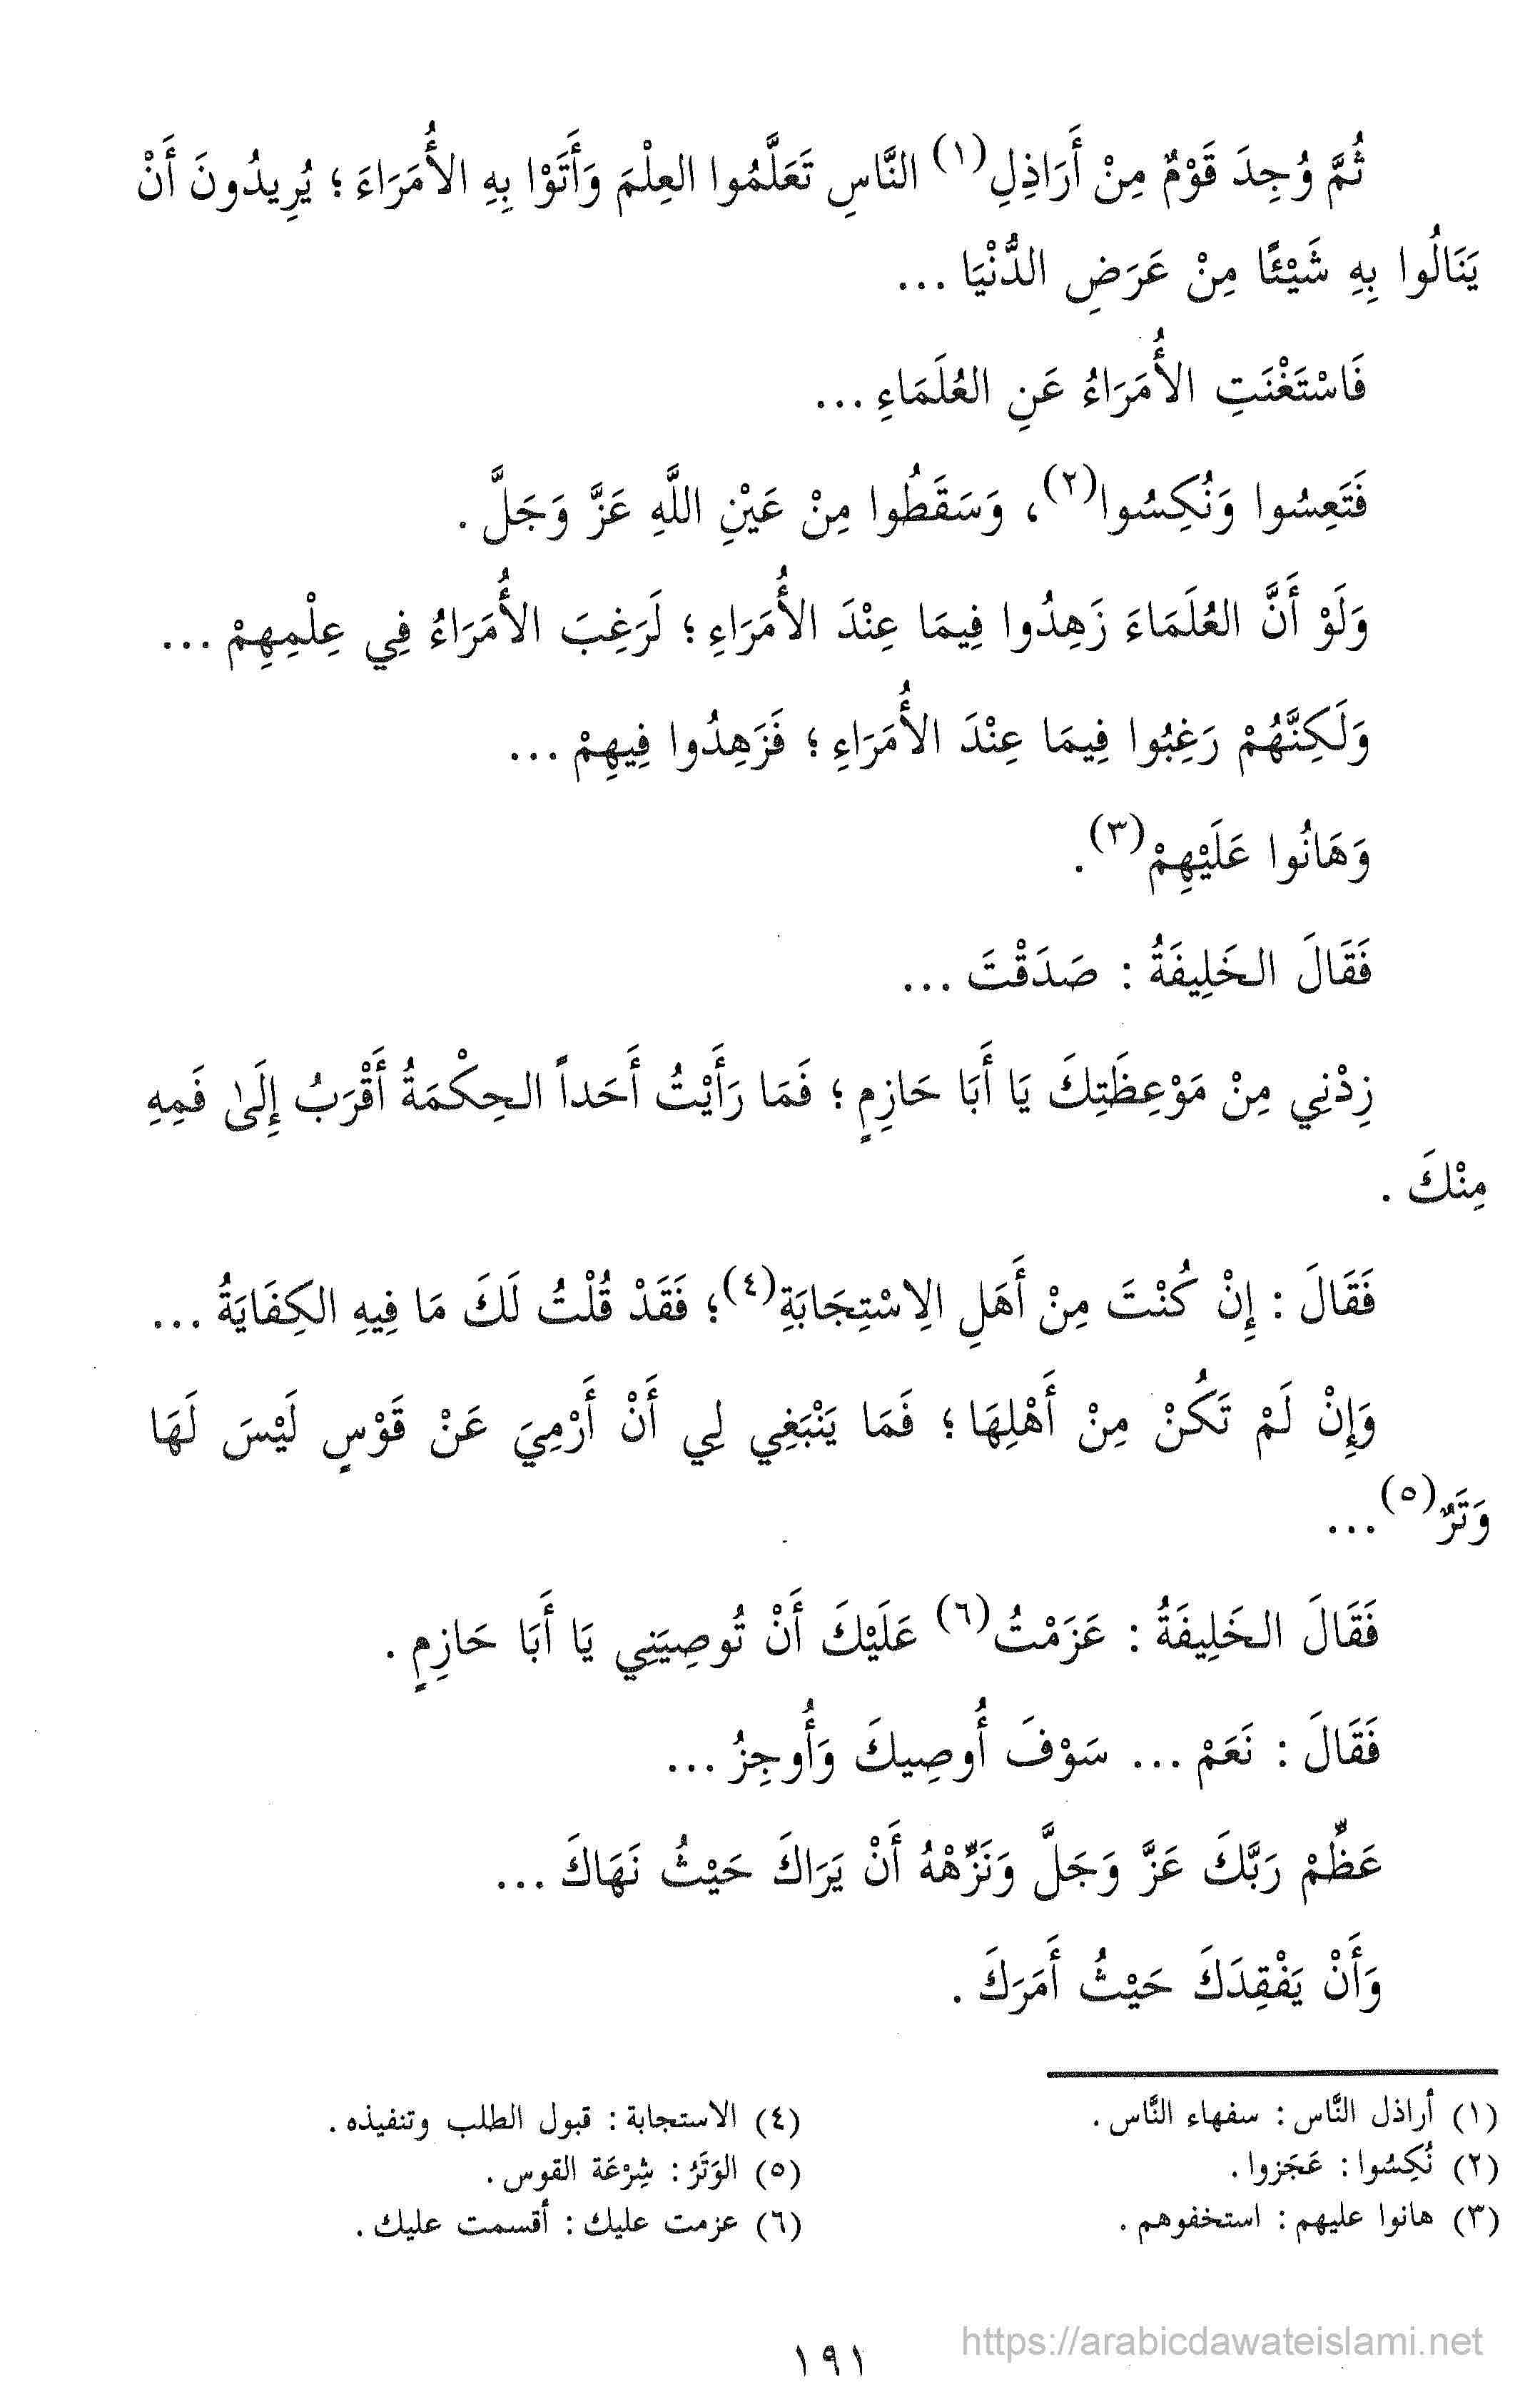 ثُمَّ وُجِدَ قَوْمٌ مِنْ أَرَاذِلِ(١) النَّاسِ تَعَلَّمُوا العِلْمَ وَأَتَوْا بِهِ الأُمَرَاءَ ؛ يُرِيدُونَ أَنْ
يَنَالُوا بِهِ شَيْئًا مِنْ عَرَضِ الدُّنْيَا ...
فَاسْتَغْنَتِ الأُمَرَاءُ عَنِ العُلَمَاءِ ...
فَتَعِسُوا وَنُكِسُوا(٢)، وَسَقَطُوا مِنْ عَيْنِ اللَّهِ عَزَّ وَجَلَّ .
وَلَوْ أَنَّ العُلَمَاءَ زَهِدُوا فِيمَا عِنْدَ الأُمَرَاءِ ؛ لَرَغِبَ الأُمَرَاءُ فِي عِلْمِهِمْ ...
وَلَكِنَّهُمْ رَغِبُوا فِيمَا عِنْدَ الأُمَرَاءِ ؛ فَزَهِدُوا فِيهِمْ ...
وَهَانُوا عَلَيْهِمْ(٣).
فَقَالَ الخَلِيفَةُ : صَدَقْتَ ...
زِدْنِي مِنْ مَوْعِظَتِكَ يَا أَبَا حَازِمٍ ؛ فَمَا رَأَيْتُ أَحَداً الحِكْمَةُ أَقْرَبُ إِلَىٰ فَمِهِ
مِنْكَ .
فَقَالَ : إِنْ كُنْتَ مِنْ أَهَلِ الِاسْتِجَابَةِ(٤)؛ فَقَدْ قُلْتُ لَكَ مَا فِيهِ الكِفَايَةُ ...
وَإِنْ لَمْ تَكُنْ مِنْ أَهْلِهَا ؛ فَمَا يَنْبَغِي لِي أَنْ أَرْمِيَ عَنْ قَوْسٍ لَيْسَ لَهَا
وَتَرٌ(٥)...
فَقَالَ الخَلِيفَةُ : عَزَمْتُ(٦) عَلَيْكَ أَنْ تُوصِيَنِي يَا أَبَا حَازِمٍ .
فَقَالَ : نَعَمْ ... سَوْفَ أُوصِيكَ وَأُوجِزُ ...
عَظِّمْ رَبَّكَ عَزَّ وَجَلَّ وَنَزِّهْهُ أَنْ يَرَاكَ حَيْثُ نَهَاكَ ...
وَأَنْ يَفْقِدَكَ حَيْثُ أَمَرَكَ .
(١) أراذل النَّاس : سفهاء النَّاس .
(٢) نُكِسُوا : عَجَزوا .
(٣) هانوا عليهم : استخفوهم .
(٤) الاستجابة : قبول الطلب وتنفيذه .
(٥) الوَتَرُ : شِرْعَة القوس .
(٦) عزمت عليك : أقسمت عليك .
https://arabicdawateislami.net
١٩١